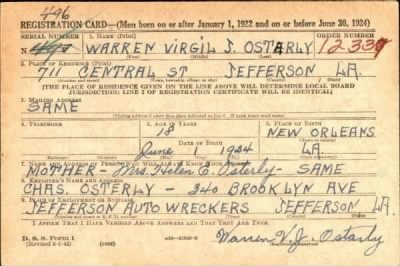 496
REGISTRATION CARD—(Men born on or after January 1, 1922 and on or before June 30, 1924)
SERIAL NUMBER 1. NAME (Print) ORDER NUMBER
N WARREN VIRGIL J. OSTARLY 12339
2. PLACE OF RESIDENCE (Print)
711 CENTRAL ST JEFFERSON LA.
(Number and street) (Town, township, village, or city) (County) (State)
[THE PLACE OF RESIDENCE GIVEN ON THE LINE ABOVE WILL DETERMINE LOCAL BOARD
JURISDICTION; LINE 2 OF REGISTRATION CERTIFICATE WILL BE IDENTICAL]
3. MAILING ADDRESS
SAME
(Mailing address if other than place indicated on line 2. If same insert word same)
4. TELEPHONE 5. AGE IN YEARS 6. PLACE OF BIRTH
18 NEW ORLEANS
DATE OF BIRTH
June 1 1924 LA.
(Mo.) (Day) (Yr.) (State or country)
7. NAME AND ADDRESS OF PERSON WHO WILL ALWAYS KNOW YOUR ADDRESS
MOTHER - Mrs. Helen E. Osterly - SAME
8. EMPLOYER'S NAME AND ADDRESS
CHAS. OSTERLY - 340 BROOKLYN AVE
9. PLACE OF EMPLOYMENT OR BUSINESS
JEFFERSON AUTO WRECKERS JEFFERSON LA.
(Number and street or R. F. D. number) (Town) (County) (State)
I AFFIRM THAT I HAVE VERIFIED ABOVE ANSWERS AND THAT THEY ARE TRUE.
D. S. S. FORM 1
(Revised 6-1-42) Warren V. J. Ostarly